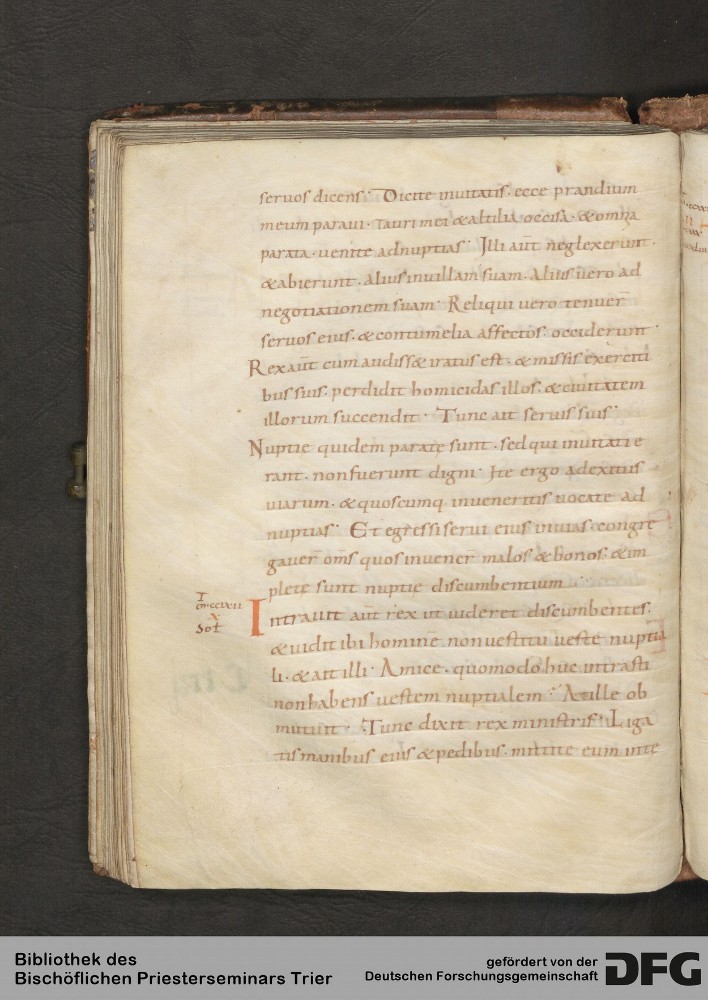 seruos dicens· Dicite inuitatis· ecce prandium
meum paraui· tauri mei & altilia occisa· & omnia
parata· uenite ad nuptias· Illi aut̄ neglexerunt·
& abierunt· alius in uillam suam· Alius uero ad
negotiationem suam· Reliqui uero tenuer̄
seruos eius· & contumelia affectos· occiderunt·
Rex aut̄ cum audiss& iratus est· & missis exerciti
bus suis· perdidit homicidas illos· & ciuitatem
illorum succendit· Tunc ait seruis suis·
Nuptie quidem parate sunt· sed qui inuitati e
rant· non fuerunt digni· Ite ergo ad exitus
uiarum· & quoscumq· inueneritis uocate ad
nuptias· Et egressi serui eius in uias· congre
gauer̄ om̄s quos inuener̄ malos & bonos· & im
plete sunt nuptie discumbentium·
Intrauit aut̄ rex ut uideret discumbentes·
& uidit ibi hominē non uestitū ueste nuptia
li· & ait illi· Amice· quomodo huc intrasti
non habens uestem nuptialem· At ille ob
mutuit· Tunc dixit rex ministris· Liga
tis manibus eius & pedibus· mittite eum inte
X
Sol
Bibliothek des
Bischöflichen Priesterseminars Trier
gefördert von der
Deutschen Forschungsgemeinschaft
DFG